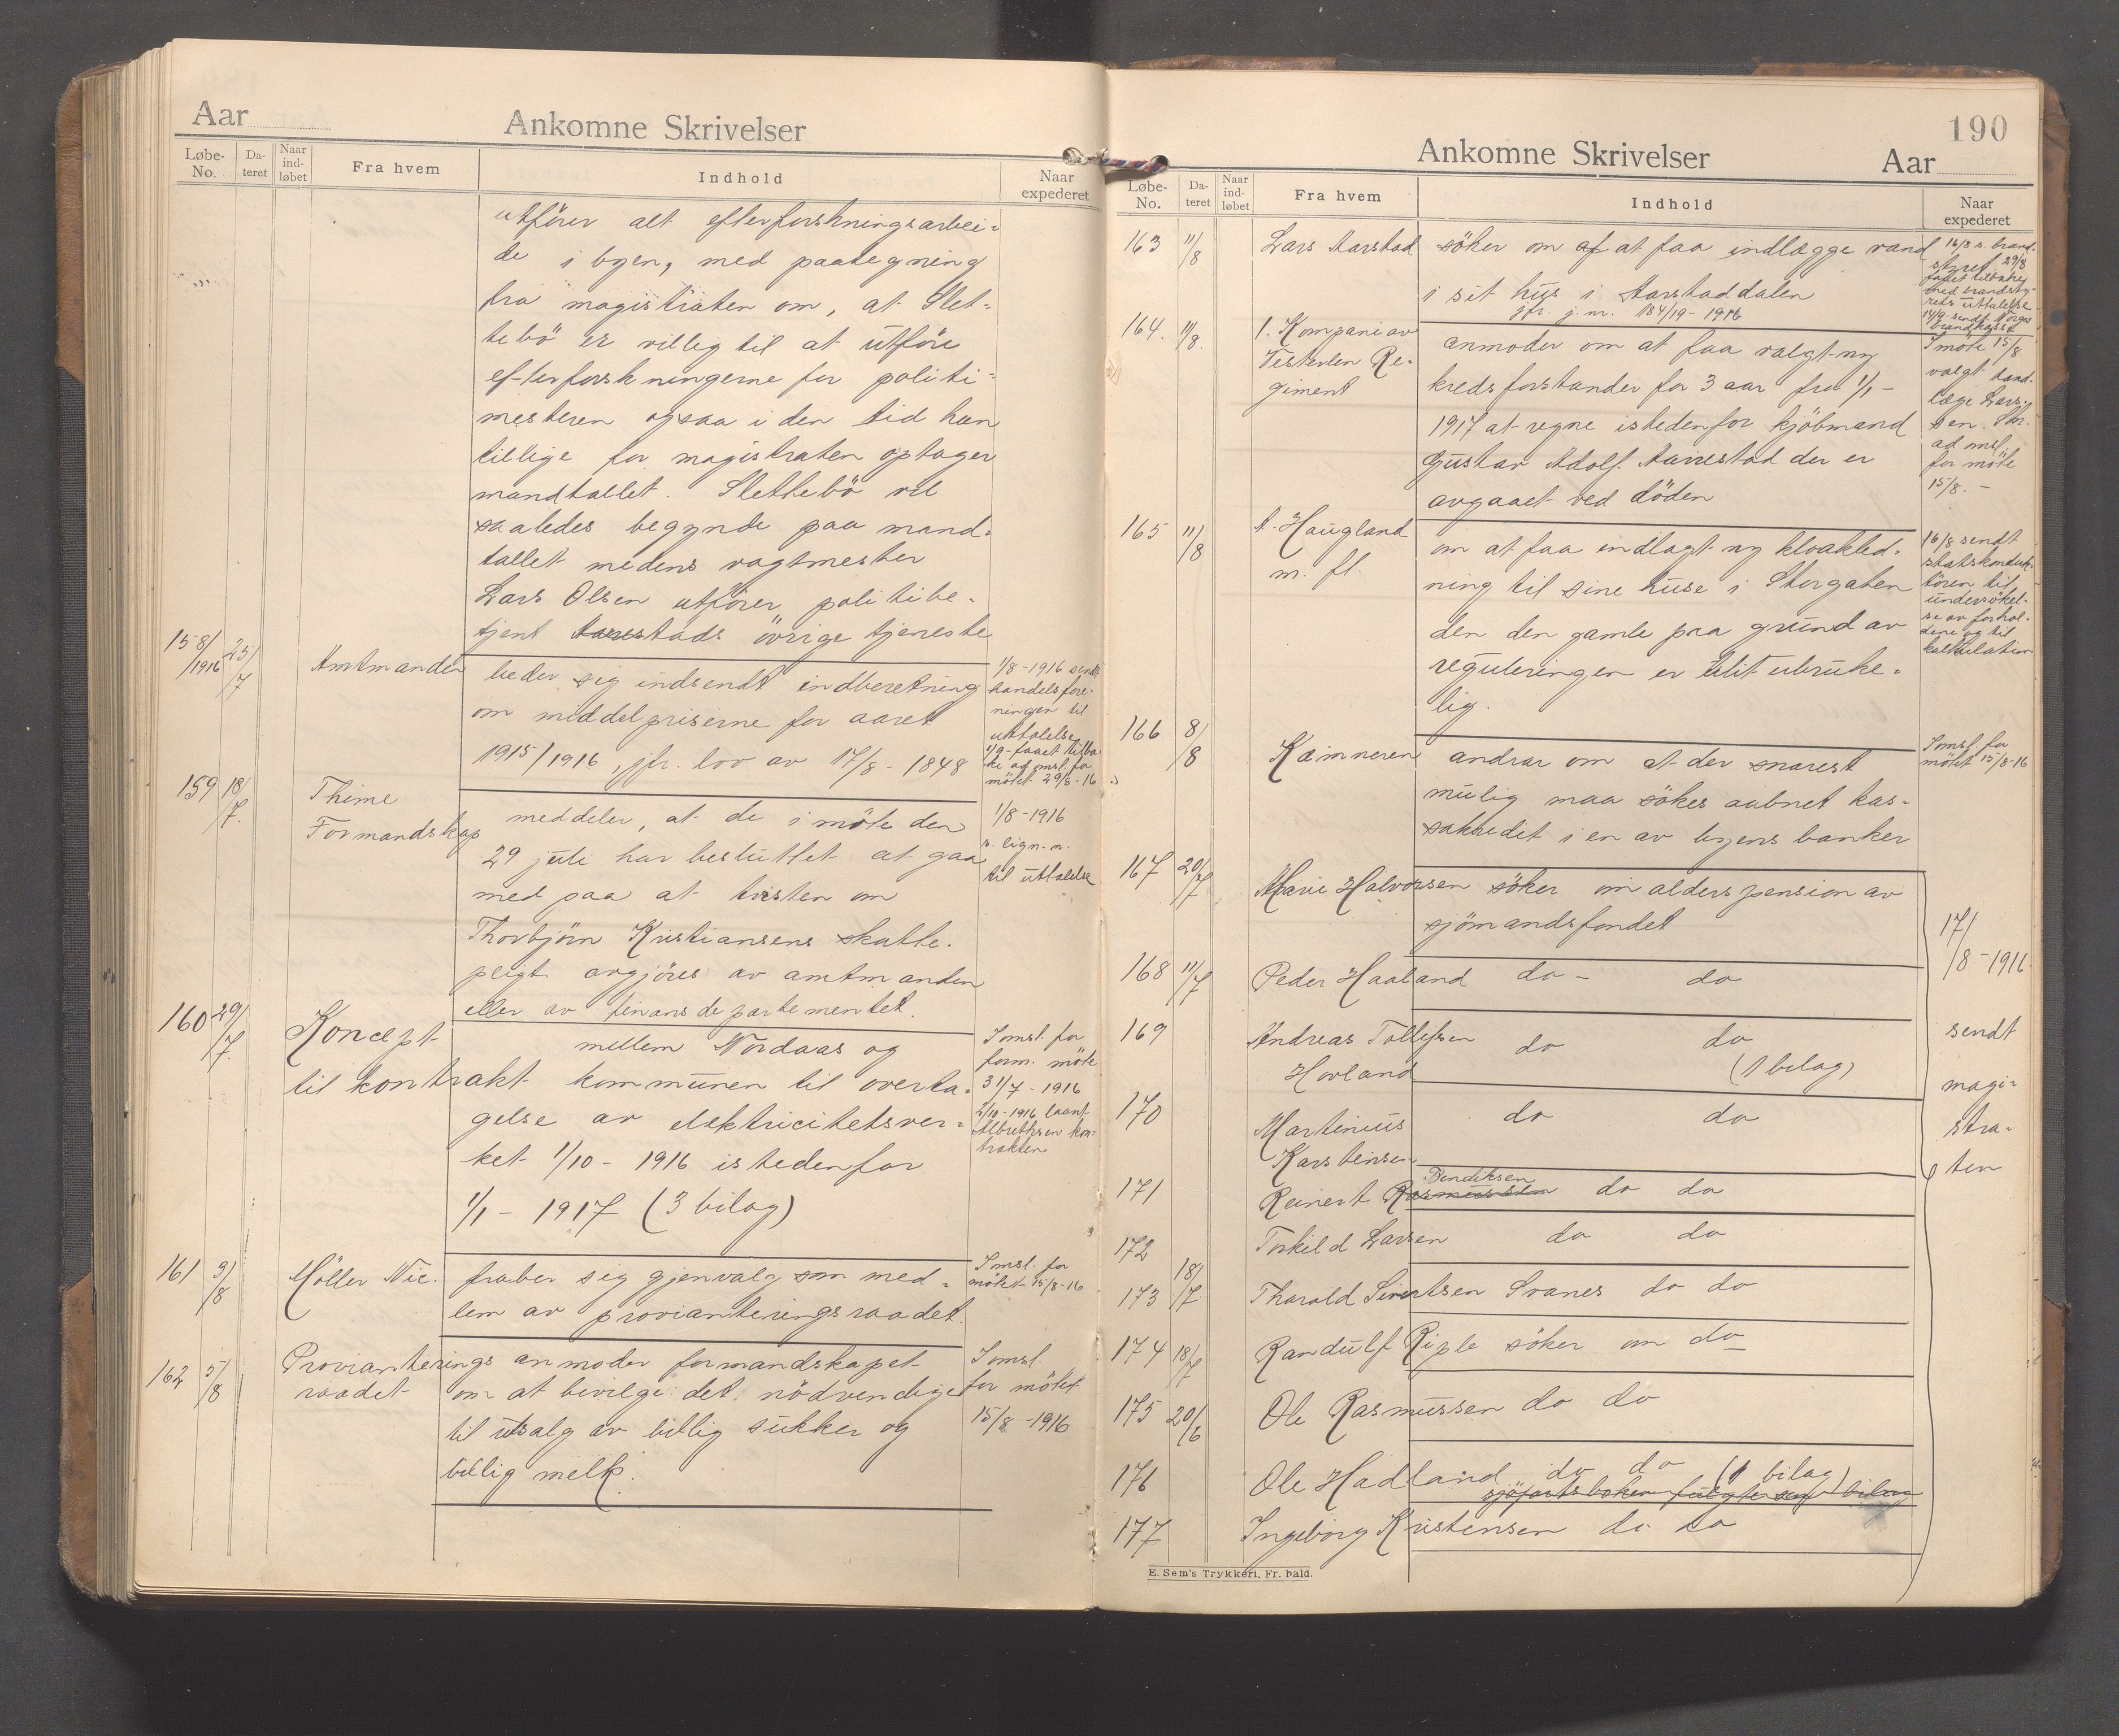 Aar
Ankomne Skrivelser
Løbe-No. Dateret Naar indløbet Fra hvem Indhold Naar expederet
utfører alt efterforskningsarbei-
de i byen, med paategning
fra magistraten om, at Slet-
tebö er villig til at utföre
efterforskningerne for politi-
mesteren ogsaa i den tid han
tillige for magistraten optager
mandtallet. Slettebö vil
saaledes begynde paa mand-
tallet medens vagtmester
Lars Olsen utfører politibe-
tjent Aarrestads övrige tjeneste
158/1916 25/7 Amtmanden
beder sig indsendt indberetning
om middelpriserne for aaret
1915/1916, jfr. lov av 17/8-1848
1/8-1916 sendt
handelsfore-
ningen til
uttalelse
1/9 faaet tilba-
ke ad omsl. for
mötet 29/8-16
159 18/7. Thime
Formandskap
meddeler, at de i möte den
29 juli har besluttet at gaa
med paa at tvisten om
Thorbjörn Kristiansens skatte-
pligt avgjöres av amtmanden
eller av finansdepartementet.
1/8-1916
s. lign.n.
til uttalelse
160 29/7. Koncept
til kontrakt
mellem Nordaas og
kommunen til overta-
gelse av elektricitetsver-
ket 1/10-1916 istedenfor
1/1-1917 (3 bilag)
I omsl. for
form. möte
31/7-1916
2/10-1916 laant
Albrethsen kon-
trakten
161 9/8 Möller Nic.
fraber sig gjenvalg som med-
lem av provianteringsraadet.
I omsl. for
mötet 15/8-16
162 5/8 Provianterings
raadet
anmoder formandskapet
om at bevilge det nödvendige
til utsalg av billig sukker og
billig melk.
I omsl.
for mötet
15/8-1916
190
Ankomne Skrivelser
Aar
Løbe-No. Dateret Naar indløbet Fra hvem Indhold Naar expederet
163 11/8 Lars Aarstad
söker om af at faa indlægge vand
i sit hus i Aarstaddalen
jfr. j.nr. 184/19-1916
16/8 s. brand-
styret 29/8
faaet tilbake
med brandsty-
rets uttalelse
14/9 sendt Norges
brandkasse
164. 11/8. 1. Kompani av
Vesterlen Re-
giment
anmoder om at faa valgt ny
kredsforstander for 3 aar fra 1/1-
1917 at regne istedenfor kjöbmand
Gustav Adolf Aarrestad der er
avgaaet ved döden
I möte 15/8
valgt tand-
læge Lars-
sen. Skr.
ad omsl.
for möte
15/8.-
165 11/8 A. Haugland
m. fl.
om at faa indlagt ny kloakled-
ning til sine huse i Storgaten
den den gamle paa grund av
reguleringen er blit ubruke-
lig.
16/8 sendt
statskonduk-
tören til
undersökel-
se av forhol-
dene og til
kalkulation
166 8/8 Kæmneren
andrar om at der snarest
mulig maa sökes aabnet kas-
sakredit i en av byens banker
I omsl. for
mötet 15/8-16
167 20/7 Marie Halvorsen söker om alderspension av
sjömandsfondet
168 11/7 Peder Haaland do - do
169 Andreas Tollefsen
Hovland do do
(1 bilag)
170 Martinius
Karstensen do do
171 Reinert Rasmussen Bendiksen do do
172 Torkild Larsen do do
173 18/7 Tharald Sivertsen Svanes do do
174 18/7 Randulf Riple söker om do
175 20/6 Ole Rasmussen do do
176 Ole Hadland do do (1 bilag)
sjöfartsboken
177 Ingeborg Kristensen do do
17/8-1916
sendt
magi-
stra-
ten
E. Sem's Trykkeri, Fr. hald.